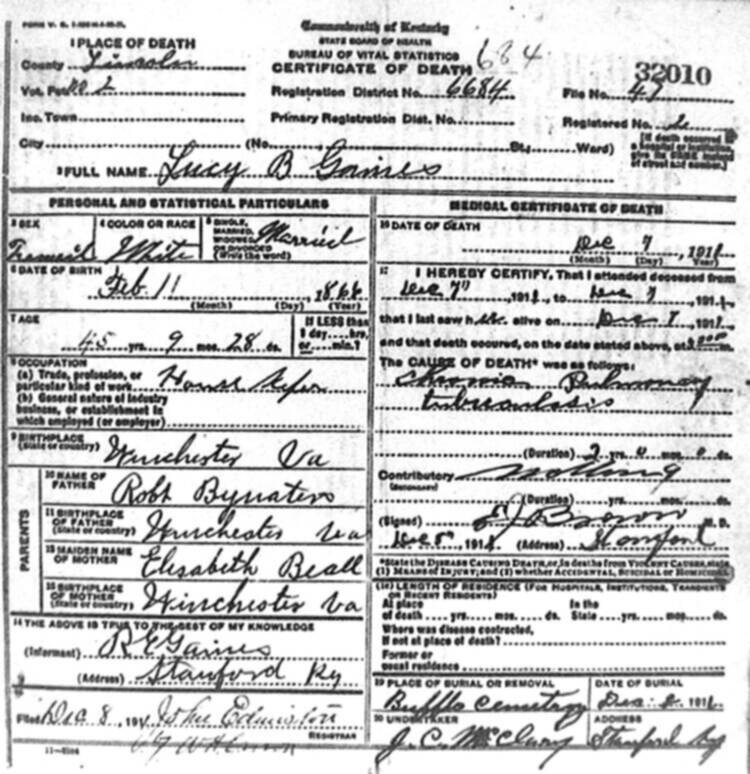 Commonwealth of Kentucky
STATE BOARD OF HEALTH
BUREAU OF VITAL STATISTICS
CERTIFICATE OF DEATH
684
32010
1 PLACE OF DEATH
County Lincoln
Vot. Pct. No 2
Registration District No. 6684
File No. 47
Inc. Town
Primary Registration Dist. No.
Registered No. 2
City (No. St., Ward)
[If death occurred in a hospital or institution give its NAME instead of street and number.]
2 FULL NAME Lucy B Gaines
PERSONAL AND STATISTICAL PARTICULARS
3 SEX
4 COLOR OR RACE White
5 SINGLE, MARRIED, WIDOWED OR DIVORCED (Write the word) Married
6 DATE OF BIRTH
Feb 11
(Month) (Day) (Year)
7 AGE
45 yrs. 9 mos. 28 ds.
If LESS than 1 day....hrs. or....min.?
8 OCCUPATION
(a) Trade, profession, or particular kind of work House Keper
(b) General nature of industry business, or establishment in which employed (or employer)
9 BIRTHPLACE
(State or country) Winchester Va
PARENTS
10 NAME OF FATHER Robt Bywaters
11 BIRTHPLACE OF FATHER (State or country) Winchester Va
12 MAIDEN NAME OF MOTHER Elisabeth Beall
13 BIRTHPLACE OF MOTHER (State or country) Winchester Va
14 THE ABOVE IS TRUE TO THE BEST OF MY KNOWLEDGE
(Informant) R E Gaines
(Address) Stanford Ky
15
Filed Dec 8, 191
REGISTRAR
MEDICAL CERTIFICATE OF DEATH
16 DATE OF DEATH
Dec 7, 1911
(Month) (Day) (Year)
17 I HEREBY CERTIFY, That I attended deceased from
Dec 7", 1911, to Dec 7, 1911,
that I last saw her alive on Dec 7, 1911,
and that death occured, on the date stated above, at
The CAUSE OF DEATH* was as follows:
Chronic Pulmonary
tuberculosis
(Duration) 2 yrs. 0 mos. 0 ds.
Contributory Nothing
(SECONDARY)
(Duration) yrs. mos. ds.
(Signed) Brown M. D.
1911 (Address) Stanford
*State the DISEASE CAUSING DEATH, or, in deaths from VIOLENT CAUSES, state
(1) MEANS OF INJURY; and (2) whether ACCIDENTAL, SUICIDAL or HOMICIDAL
18 LENGTH OF RESIDENCE (FOR HOSPITALS, INSTITUTIONS, TRANSIENTS OR RECENT RESIDENTS)
At place of death ....yrs. ....mos. ....ds. In the State ....yrs. ....mos. ....ds.
Where was disease contracted,
If not at place of death?
Former or
usual residence
19 PLACE OF BURIAL OR REMOVAL
Bufflo Cemetry
DATE OF BURIAL
1911
20 UNDERTAKER
J. C. McClary
ADDRESS
Stanford Ky